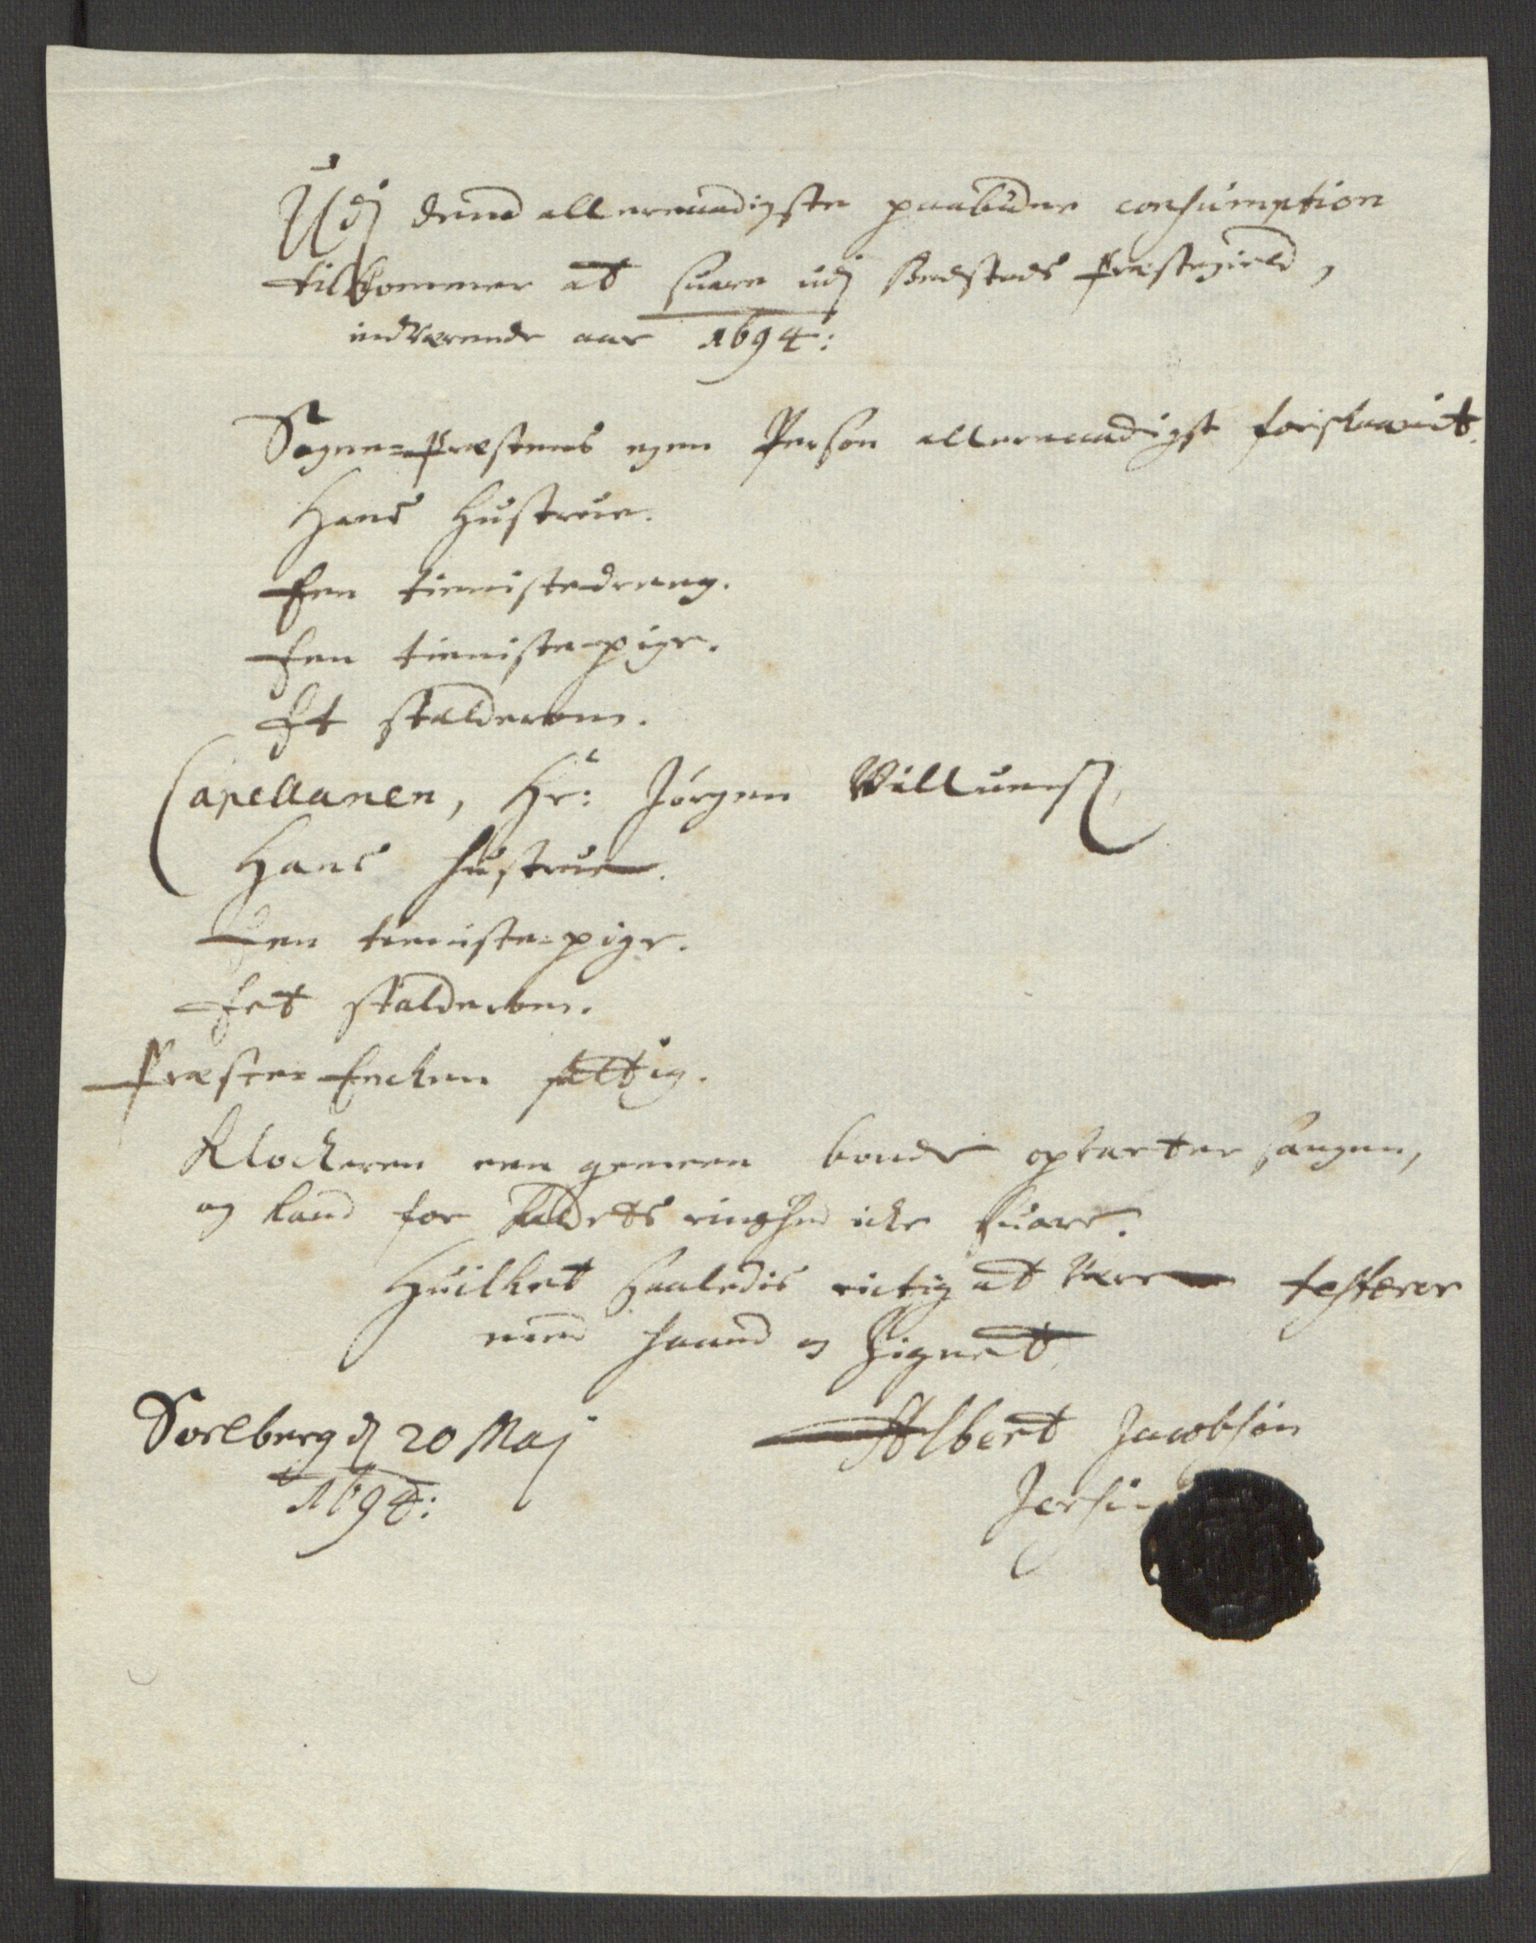 Udj dend allernaadigste paabudne consumption
tilkommer at suare udj Sendsteds Præstegield,
indværende aar 1694:
Sogne-Præstens egen Person allernaadigst forskaanit.
Hans Hustrue.
Een tienistedreng.
Een tieniste-pige.
Et stalderom.
Capellanen, Hr: Jørgen Villumsen,
Hans hustrue.
Een tieniste-pige.
Eet stalderom.
Præste-Encken fattig.
Klockeren een gemeen bonde opvarter sangen,
og kand for kaldets ringhed icke suare.
Huilket saaledis rictig at være testerer
med haand og Signet
Sørlberg d 20 Maj Albert Jacobsøn
1694: Jersin